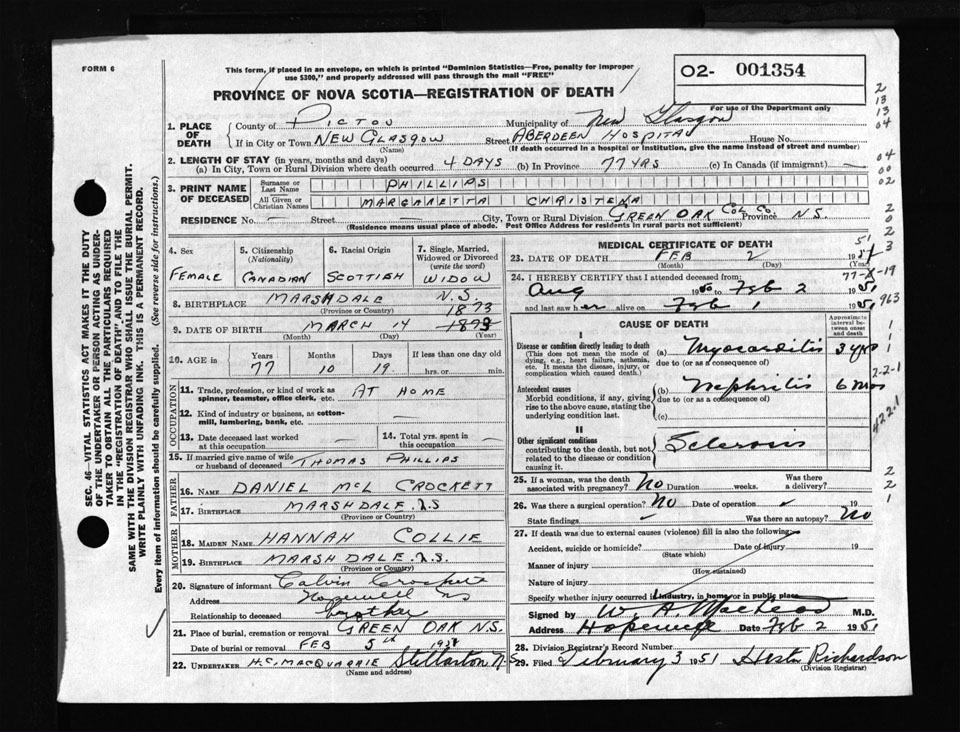 FORM 6
This form, if placed in an envelope, on which is printed "Dominion Statistics—Free, penalty for improper
use $300," and properly addressed will pass through the mail "FREE"
O2- 001354
PROVINCE OF NOVA SCOTIA—REGISTRATION OF DEATH
For use of the Department only
1. PLACE OF DEATH
County of PICTOU Municipality of New Glasgow
If in City or Town NEW GLASGOW Street ABERDEEN HOSPITAL House No.
(Name) (If death occurred in a hospital or institution, give the name instead of street and number)
2. LENGTH OF STAY (in years, months and days)
(a) In City, Town or Rural Division where death occurred 4 DAYS (b) In Province 77 YRS (c) In Canada (if immigrant) —
3. PRINT NAME OF DECEASED
Surname or Last Name PHILLIPS
All Given or Christian Names MARGARETTA CHRISTENA
RESIDENCE No. — Street — City, Town or Rural Division GREEN OAK COL. CO. Province N.S.
(Residence means usual place of abode. Post Office Address for residents in rural parts not sufficient)
4. Sex FEMALE
5. Citizenship (Nationality) CANADIAN
6. Racial Origin SCOTTISH
7. Single, Married, Widowed or Divorced (write the word) WIDOW
8. BIRTHPLACE MARSHDALE N.S.
(Province or Country)
1873
9. DATE OF BIRTH MARCH 14 1873
(Month) (Day) (Year)
10. AGE in Years 77 Months 10 Days 19 If less than one day old hrs. or min.
OCCUPATION
11. Trade, profession, or kind of work as spinner, teamster, office clerk, etc. AT HOME
12. Kind of industry or business, as cotton-mill, lumbering, bank, etc. —
13. Date deceased last worked at this occupation —
14. Total yrs. spent in this occupation —
15. If married give name of wife or husband of deceased THOMAS PHILLIPS
FATHER
16. NAME DANIEL MCL CROCKETT
17. BIRTHPLACE MARSHDALE N.S
(Province or Country)
MOTHER
18. MAIDEN NAME HANNAH COLLIE
19. BIRTHPLACE MARSHDALE N.S
(Province or Country)
20. Signature of informant Calvin Crockett
Address Hopewell NS
Relationship to deceased brother
21. Place of burial, cremation or removal GREEN OAK N.S.
Date of burial or removal FEB 5th 1951
22. UNDERTAKER H.C. MACQUARRIE Stellarton N.S
(Name and address)
MEDICAL CERTIFICATE OF DEATH
23. DATE OF DEATH FEB 2 1951
(Month) (Day) (Year)
24. I HEREBY CERTIFY that I attended deceased from:
Aug 1950 to Feb 2 1951
and last saw her alive on Feb 1 1951
CAUSE OF DEATH
Approximate interval between onset and death
I
Disease or condition directly leading to death
(This does not mean the mode of dying, e.g., heart failure, asthenia, etc. It means the disease, injury, or complication which caused death.)
(a) Myocarditis 3 yrs
due to (or as a consequence of)
Antecedent causes
Morbid conditions, if any, giving rise to the above cause, stating the underlying condition last.
(b) Nephritis 6 mos
due to (or as a consequence of)
(c)
II
Other significant conditions
contributing to the death, but not related to the disease or condition causing it.
Sclerosis
25. If a woman, was the death associated with pregnancy? No Duration weeks. Was there a delivery?
26. Was there a surgical operation? No Date of operation 19
State findings Was there an autopsy? No
27. If death was due to external causes (violence) fill in also the following:
Accident, suicide or homicide? Date of injury 19
(State which)
Manner of injury
(How sustained)
Nature of injury
Specify whether injury occurred in industry, in home or in public place
Signed by W. A. MacLeod M.D.
Address Hopewell Date Feb 2 1951
28. Division Registrar's Record Number
29. Filed February 3 1951 Hester Richardson
(Division Registrar)
SEC. 46—VITAL STATISTICS ACT MAKES IT THE DUTY
OF THE UNDERTAKER OR PERSON ACTING AS UNDER-
TAKER TO OBTAIN ALL THE PARTICULARS REQUIRED
IN THE "REGISTRATION OF DEATH", AND TO FILE THE
SAME WITH THE DIVISION REGISTRAR WHO SHALL ISSUE THE BURIAL PERMIT.
WRITE PLAINLY WITH UNFADING INK. THIS IS A PERMANENT RECORD.
Every item of information should be carefully supplied. (See reverse side for instructions.)
2
13
13
04
04
00
02
2
0
2
3
51
77-X-19
963
1
1
1
2-2-1
422-1
2
2
1